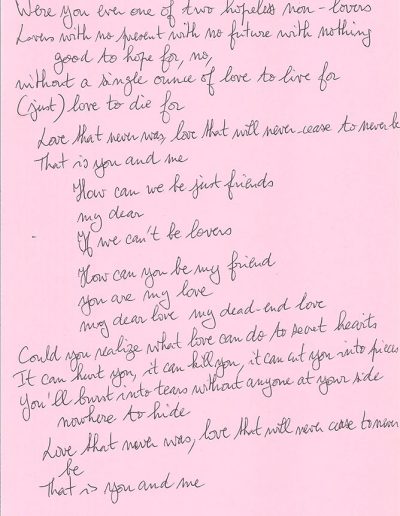 Were you ever one of two hopeless non-lovers
Lovers with no present with no future with nothing
good to hope for, no,
without a single ounce of love to live for
(just) love to die for
Love that never was, love that will never cease to never be
That is you and me
How can we be just friends
my dear
If we can't be lovers
How can you be my friend
you are my love
my dear love my dead-end love
Could you realize what love can do to secret hearts
It can hurt you, it can kill you, it can cut you into pieces
You'll burst into tears without anyone at your side
nowhere to hide
Love that never was, love that will never cease to never
be
That is you and me